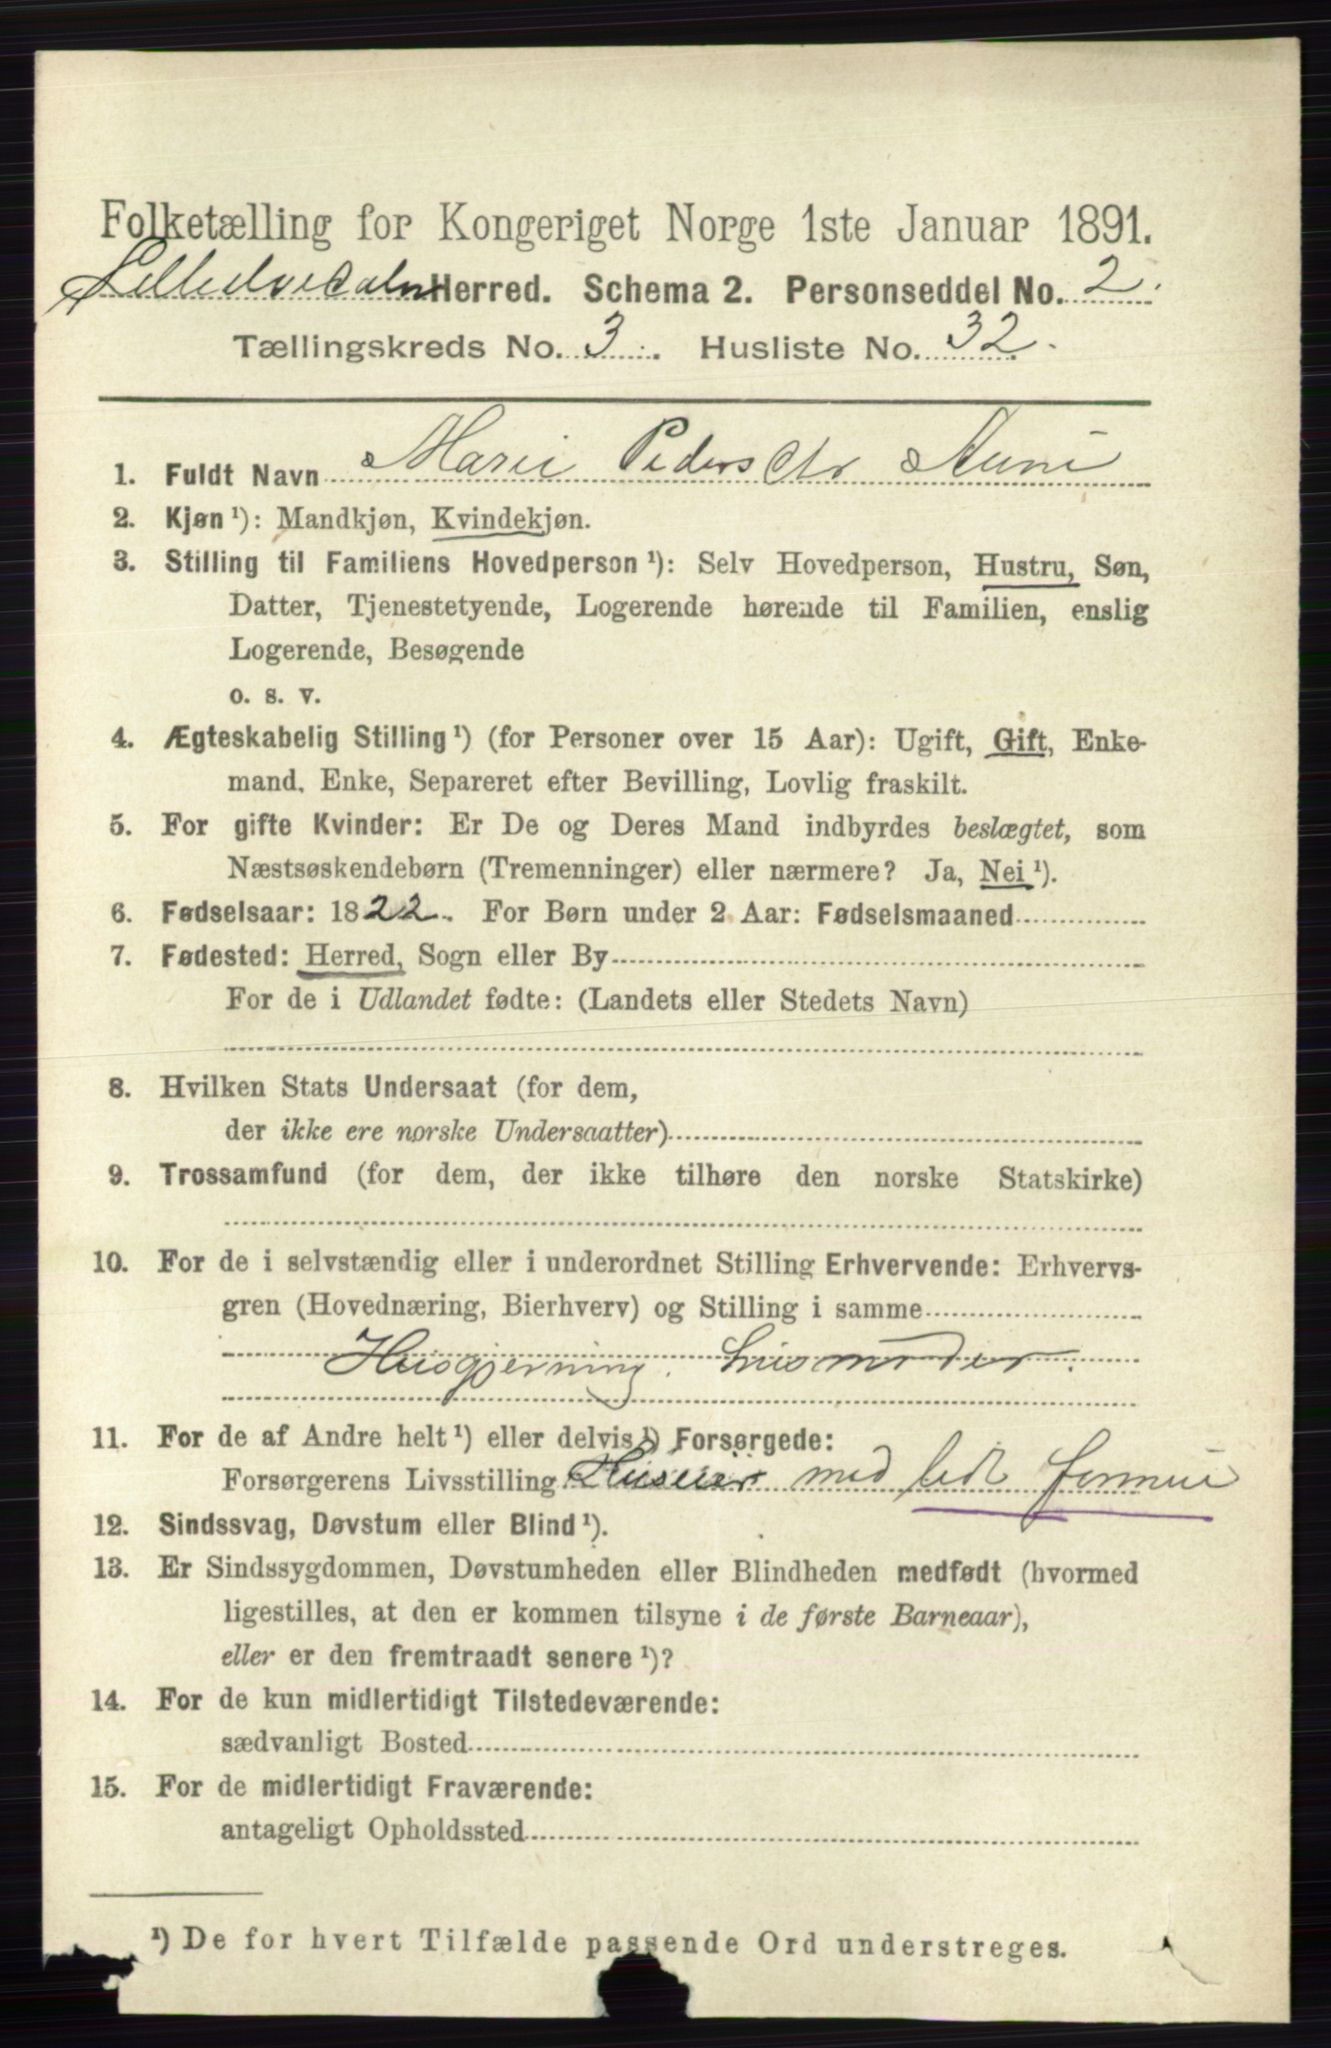 Folketælling for Kongeriget Norge 1ste Januar 1891.
Lilleelvedalen Herred. Schema 2. Personseddel No. 2.
Tællingskreds No. 3. Husliste No. 32.
1. Fuldt Navn Marie Pedersdtr Aune
2. Kjøn ¹): Mandkjøn, Kvindekjøn.
3. Stilling til Familiens Hovedperson ¹): Selv Hovedperson, Hustru, Søn,
Datter, Tjenestetyende, Logerende hørende til Familien, enslig
Logerende, Besøgende
o. s. v.
4. Ægteskabelig Stilling ¹) (for Personer over 15 Aar): Ugift, Gift, Enke-
mand, Enke, Separeret efter Bevilling, Lovlig fraskilt.
5. For gifte Kvinder: Er De og Deres Mand indbyrdes beslægtet, som
Næstsøskendebørn (Tremenninger) eller nærmere? Ja, Nei ¹).
6. Fødselsaar: 1822. For Børn under 2 Aar: Fødselsmaaned
7. Fødested: Herred, Sogn eller By
For de i Udlandet fødte: (Landets eller Stedets Navn)
8. Hvilken Stats Undersaat (for dem,
der ikke ere norske Undersaatter)
9. Trossamfund (for dem, der ikke tilhøre den norske Statskirke)
10. For de i selvstændig eller i underordnet Stilling Erhvervende: Erhvervs-
gren (Hovednæring, Bierhverv) og Stilling i samme
Husgjerning. husmoder.
11. For de af Andre helt ¹) eller delvis ¹) Forsørgede:
Forsørgerens Livsstilling Huseier med lidt formue
12. Sindssvag, Døvstum eller Blind ¹).
13. Er Sindssygdommen, Døvstumheden eller Blindheden medfødt (hvormed
ligestilles, at den er kommen tilsyne i de første Barneaar),
eller er den fremtraadt senere ¹)?
14. For de kun midlertidigt Tilstedeværende:
sædvanligt Bosted
15. For de midlertidigt Fraværende:
antageligt Opholdssted
¹) De for hvert Tilfælde passende Ord understreges.